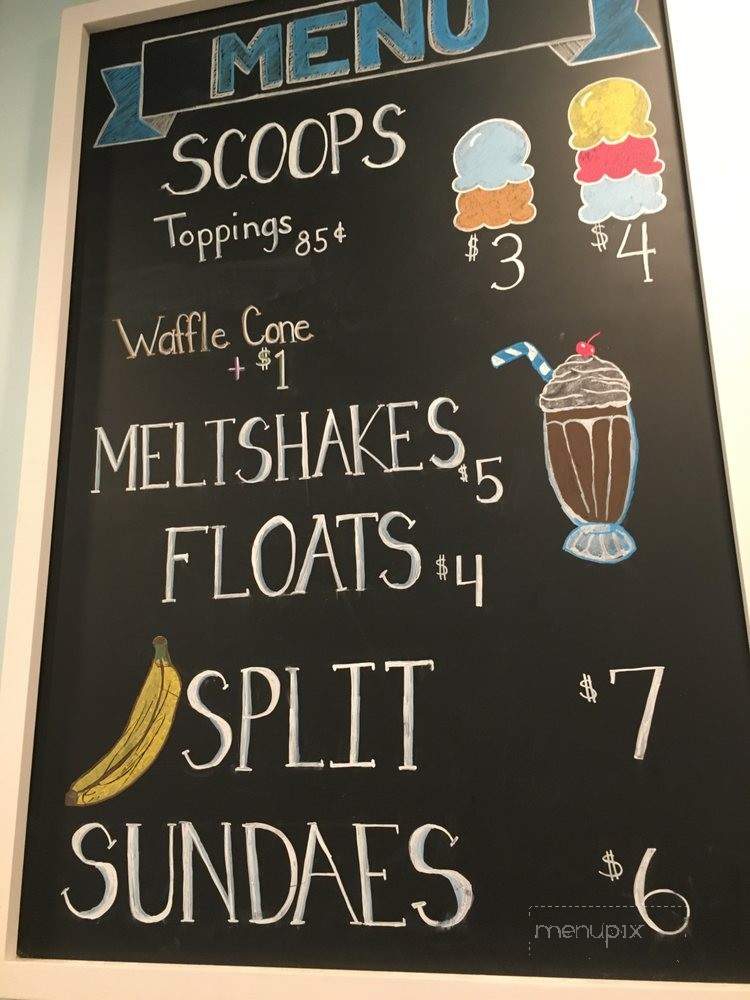 MENU
SCOOPS
Toppings 85¢
$3 $4
Waffle Cone
+ $1
MELTSHAKES $5
FLOATS $4
SPLIT $7
SUNDAES $6
menupix